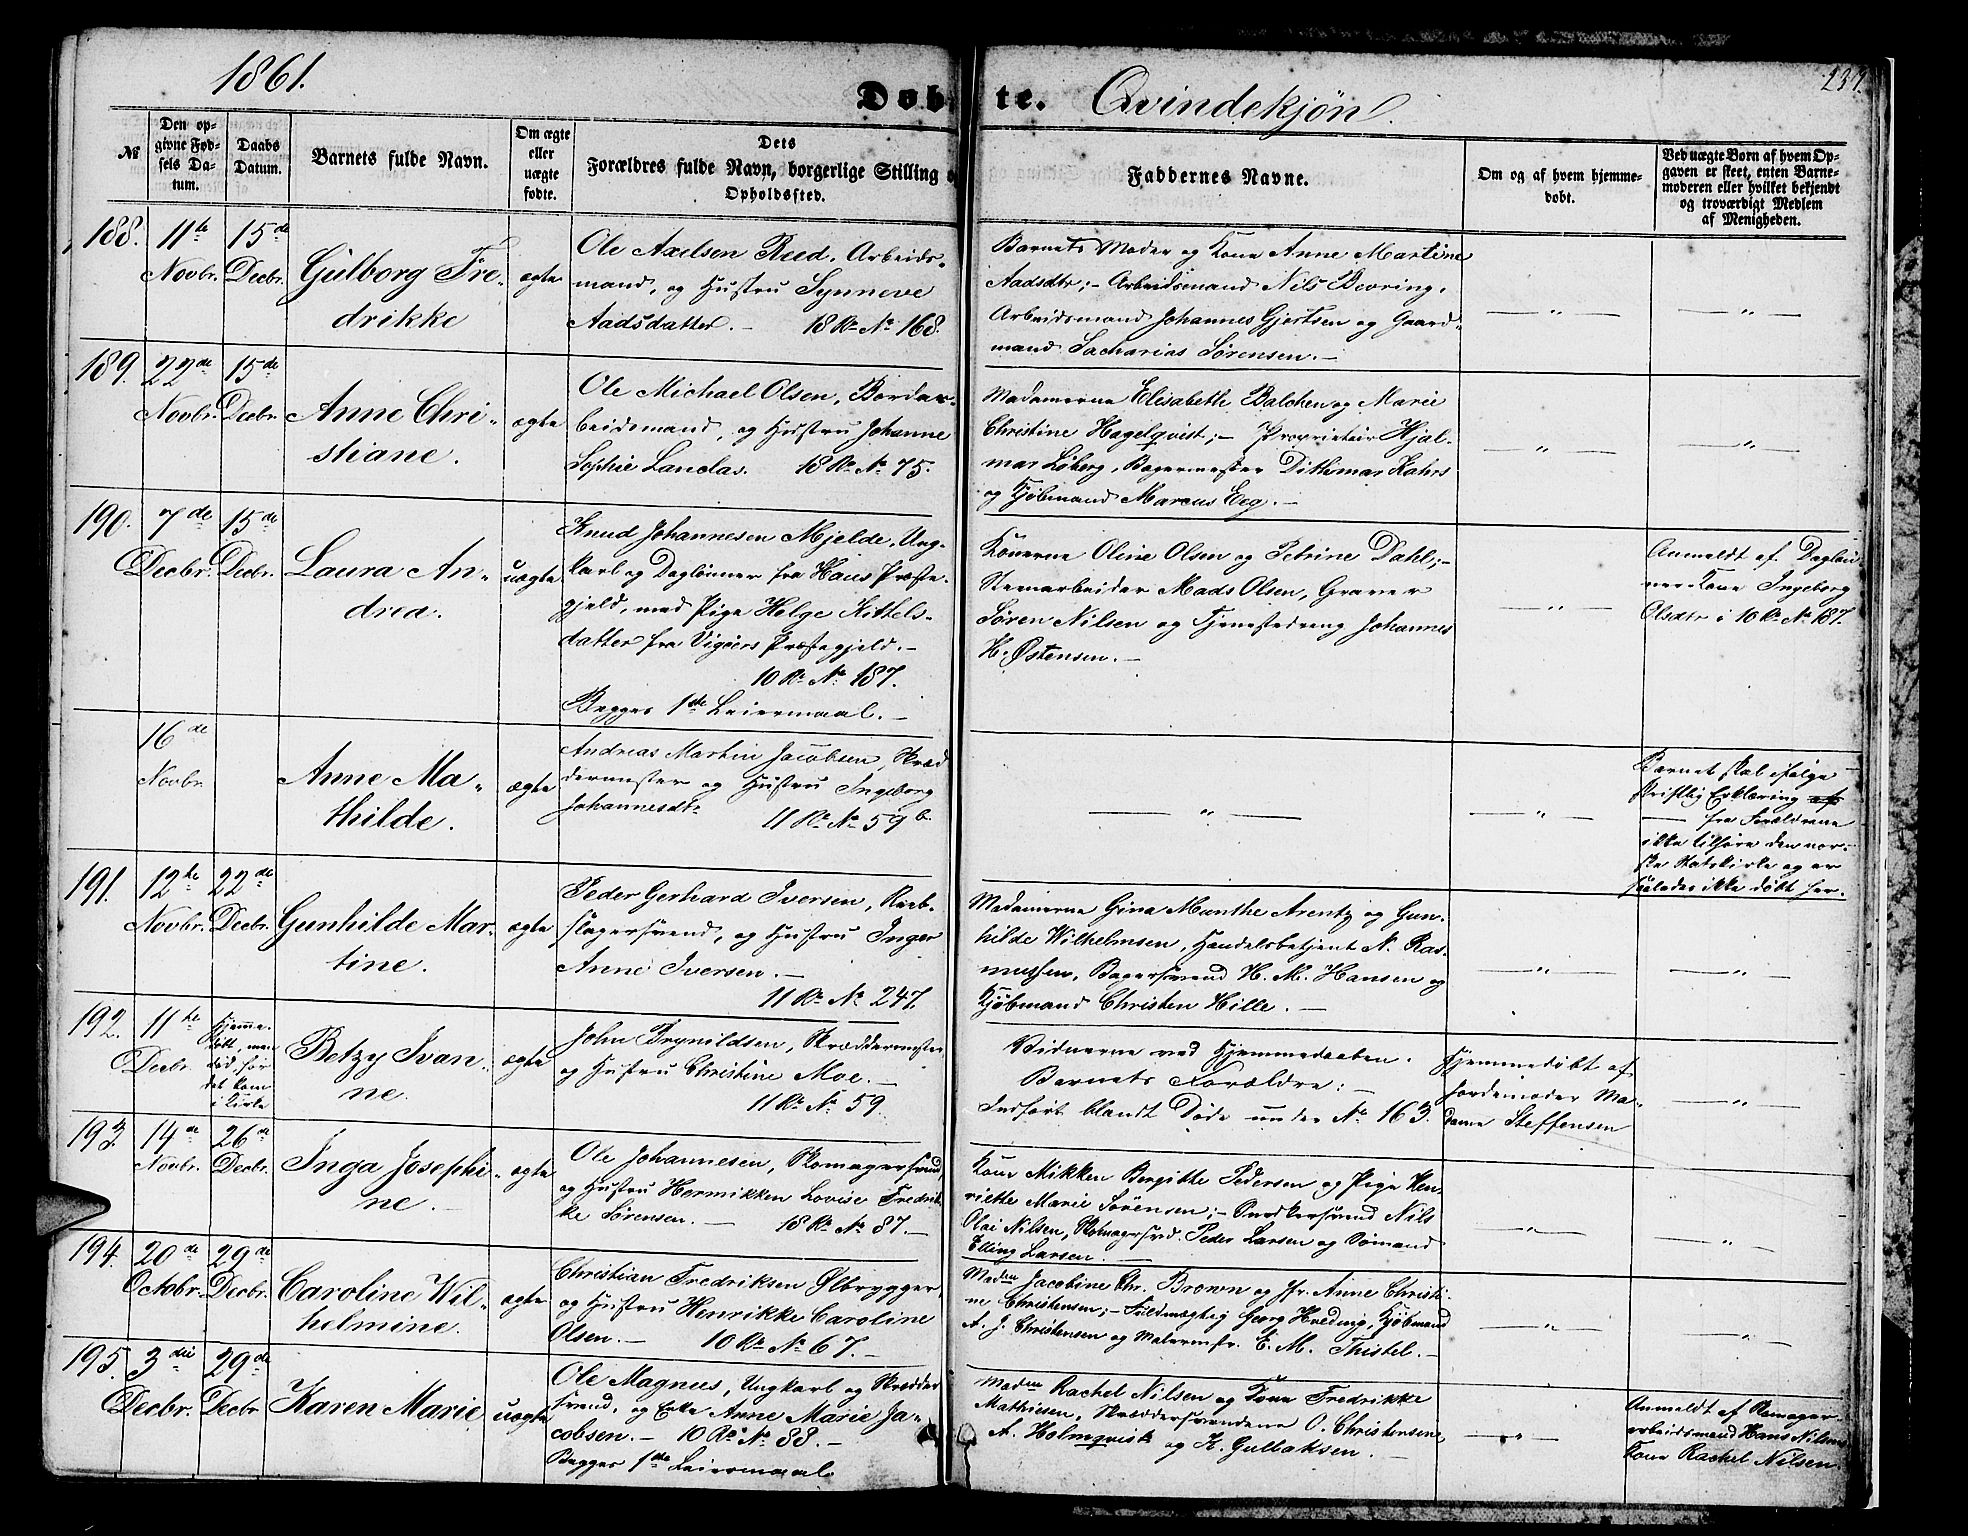 1861.
Døbte. Qvindekjøn.
237.
№
Den opgivne Fødsels Datum.
Daabs Datum.
Barnets fulde Navn.
Om ægte eller uægte fødte.
Dets Forældres fulde Navn, borgerlige Stilling og Opholdssted.
Faddernes Navne.
Om og af hvem hjemmedøbt.
Ved uægte Børn af hvem Opgaven er skeet, enten Barnemoderen eller hvilket bekjendt og troværdigt Medlem af Menigheden.
188. 11te Novbr. 15de Decbr.
Gülborg Fredrikke
ægte
Ole Axelsen Reed, Arbeids-
mand, og Hustru Synneve
Aadsdatter. — 18 Rd. No 168.
Barnets Moder og Kone Anne Martine
Aadsdtr; - Arbeidsmand Nils Bevring,
Arbeidsmand Johannes Gjertsen og Gaard-
mand Sacharias Sørensen. —
— „ —
— „ —
189. 22de Novbr. 15de Decbr.
Anne Christiane.
ægte
Ole Michael Olsen, Bordar-
beidsmand, og Hustru Johanne
Sophie Landas. 18 Rd. No 75.
Madamerne Elisabeth Balchen og Marie
Christine Hagelqvist; - Proprietair Hjal-
mar Løberg, Bagermester Dithmar Kahrs
og Kjøbmand Marcus Eeg. —
— „ —
— „ —
190. 7de Decbr. 15de Decbr.
Laura Andrea.
uægte
Knud Johannesen Mjelde, Ung-
karl og Daglønner fra Haus Præste-
gjeld, med Pige Helge Kittels-
datter fra Vigøers Præstegjeld. —
10 Rd. No 187.
Begges 1ste Leiermaal. —
Konerne Oline Olsen og Petrine Dahl; -
Steenarbeider Mads Olsen, Graver
Søren Nilsen og Tjenestedreng Johannes
H. Østensen. —
— „ —
Anmeldt af Dagløn-
ner-Kone Ingeborg
Olsdtr i 10 Rd. No 187.
16de Novbr.
Anne Mathilde.
ægte
Andreas Martin Jacobsen, Skræd
dermester og Hustru Ingeborg
Johannesdtr
11 Rd. No 59 b.
— „ —
— „ —
Barnet skal ifølge
skriftlig Erklæring af
— fra Forældrene
ikke tilhøre den nor-
ske Statskirke og er
saaledes ikke døbt her.
191. 12te Novbr. 22de Decbr.
Gunhilde Martine.
ægte
Peder Gerhard Iversen, Reeb-
slagersvend, og Hustru Inger
Anne Iversen. —
11 Rd. No 247.
Madamerne Gina Munthe Arentz og Gun-
hilde Wilhelmsen, Handelsbetjent N. Ras-
mussen, Bagersvend H. M. Hansen og
Kjøbmand Christen Hille. —
— „ —
— „ —
192. 11te Decbr.
Hjemme-
døbt, men
død, før
det kom
i Kirke
Betzy Ivanne.
ægte
John Brynildsen, Skræddermester
og Hustru Christine Moe. —
11 Rd. No 59.
Vidnerne ved Hjemmedaaben.
Barnets Forældre: -
Indført blandt Døde under No 163.
Hjemmedøbt af
Jordemoder Ma-
dame Steffensen
— „ —
193. 14de Novbr. 26de Decbr.
Inga Josephine.
ægte
Ole Johannesen, Skomagersvend,
og Hustru Hermikken Lovise Fredrik
ke Sørensen. — 18 Rd. No 87. —
Kone Mikken Bergitte Pedersen og Pige Hen-
riette Marie Sørensen; - Snedkersvend Nils
Olai Nilsen, Skomagersvd. Peder Larsen og Sømand
Elling Larsen. —
— „ —
— „ —
194. 20de Octobr. 29de Decbr.
Caroline Wilhelmine.
ægte
Christian Fredriksen Ølbrygger,
og Hustru Henrikke Caroline
Olsen. — 10 Rd. No 67. —
Madme Jacobine Chr. Brown og Jfr. Anne Christi-
ne Christensen; - Fuldmægtig Georg Hveding, Kjøbmand
A. J. Christensen og Malermstr. E. M. Thistel. —
— „ —
— „ —
195. 3die Decbr. 29de Decbr
Karen Marie
uægte
Ole Magnus, Ungkarl og Skrædder
svend, og Enke Anne Marie Ja-
cobsen. — 10 Rd. No 88. —
Begges 1ste Leiermaal.
Madme Rachel Nilsen og Kone Fredrikke
Mathiesen, Skræddersvendene O. Christensen,
A. Holmqvist og K. Gullaksen. —
— „ —
Anmeldt af Skomager-
arbeidsmand Hans Nilsens
Kone Rachel Nilsen.